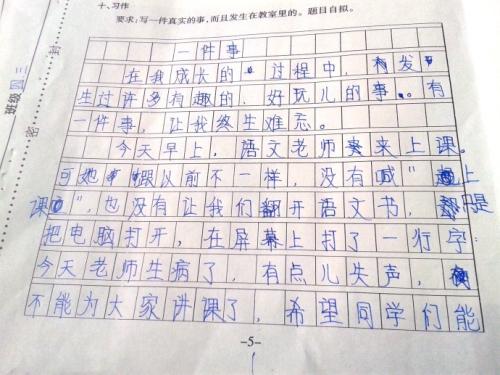 十、习作
要求：写一件真实的事，而且发生在教室里的。题目自拟。
一件事
在我成长的过程中，有发
生过许多有趣的、好玩儿的事。有
一件事，让我终生难忘。
今天早上，语文老师来上课。
可她跟以前不一样，没有喊“上
课”，也没有让我们翻开语文书，只是
把电脑打开，在屏幕上打了一行字：
今天老师生病了，有点儿失声，
不能为大家讲课了，希望同学们能
-5-
班级 四三
密
封